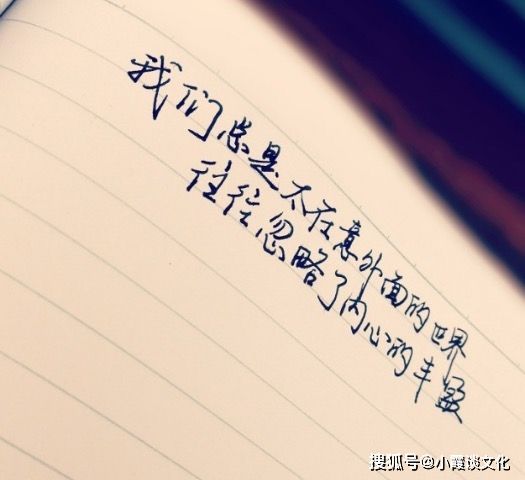 我们总是太在意外面的世界
往往忽略了内心的丰盈
搜狐号@小霞谈文化